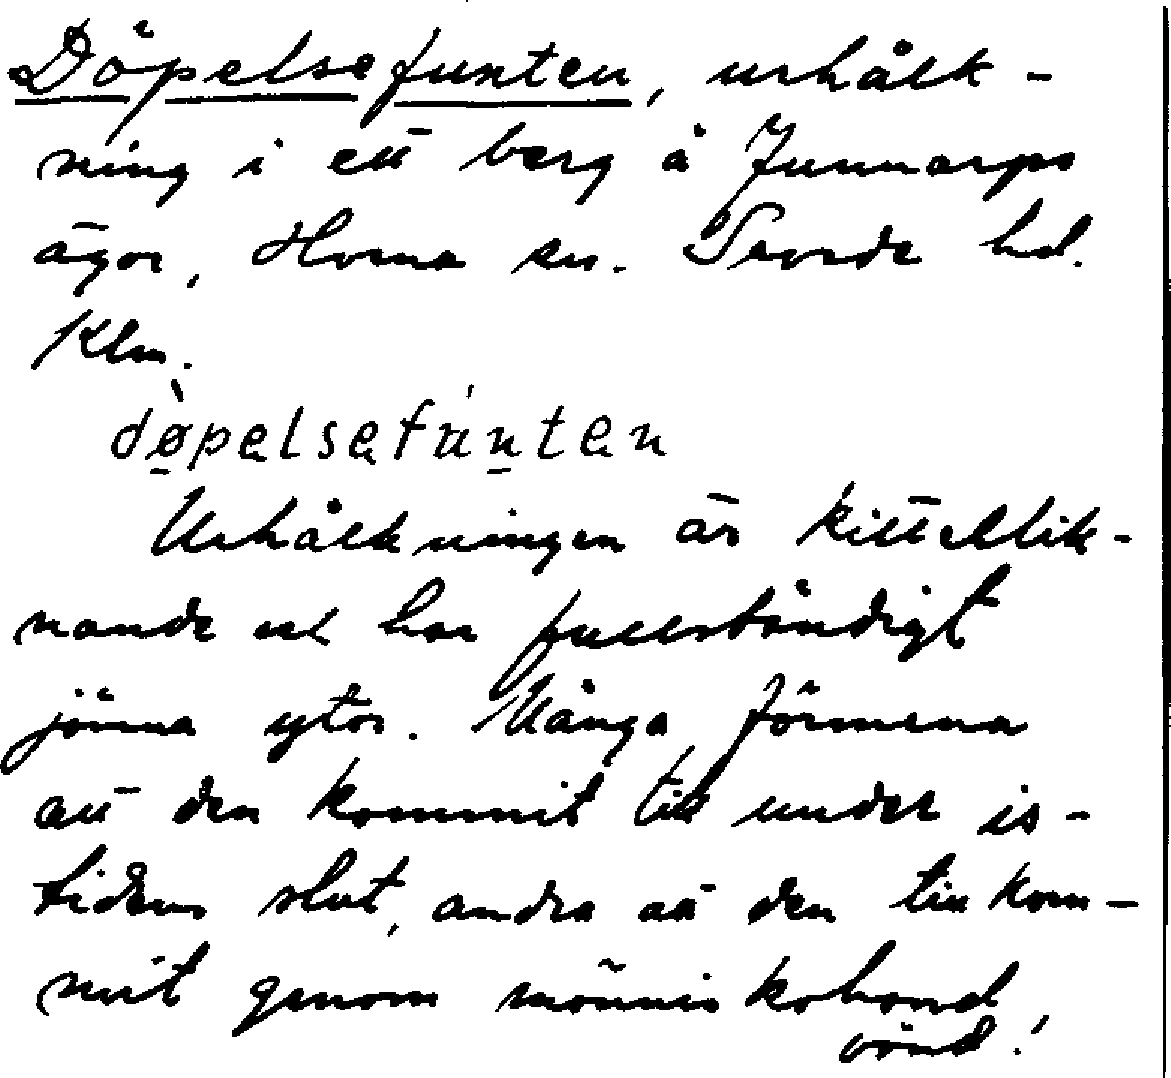 Döpelsefunten, urhålk-
ning i ett berg å Junnarps
ägor, Horna sn. Tevorde hd.
Klm.
dø̀pelsefúnten
Urhålkningen är kittellik-
nande och har fullständigt
jämna ytor. Många förmena
att den kommit till under is-
tidens slut, andra att den till kom-
mit genom människohand
vänd!